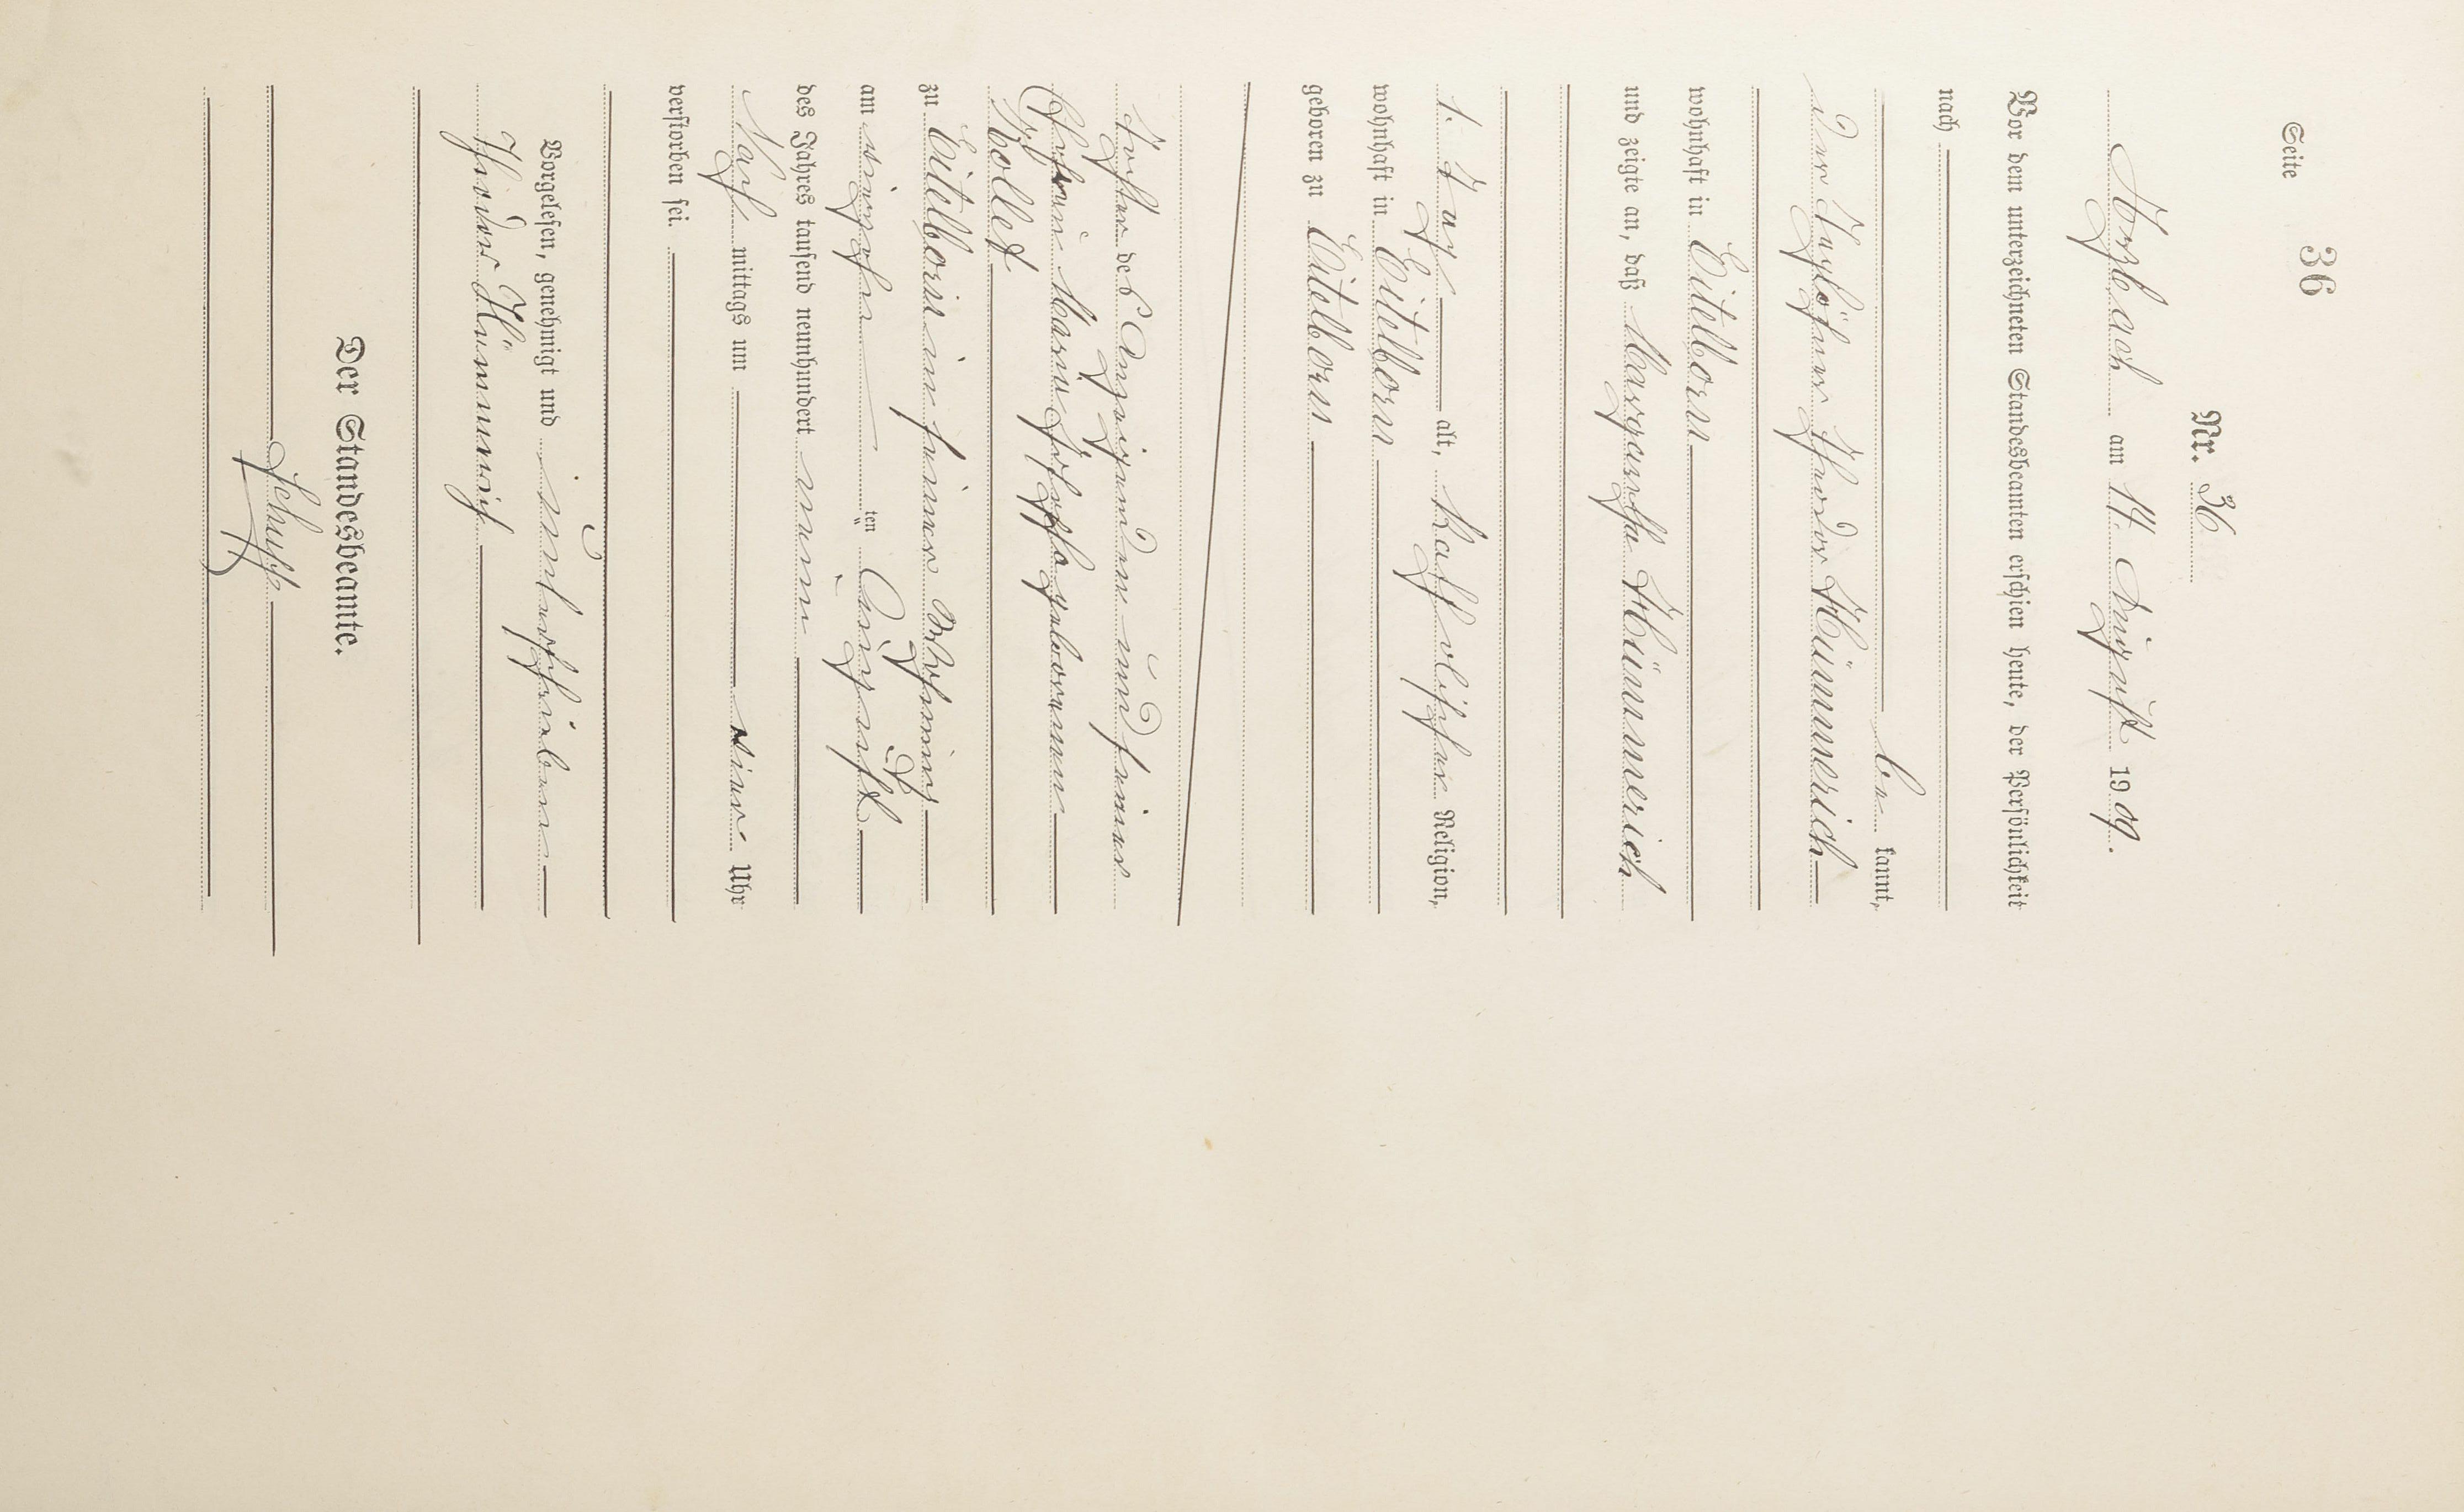 Seite 36
Nr. 36
Arzbach am 14. August 1909.
Vor dem unterzeichneten Standesbeamten erschien heute, der Persönlichkeit
nach
be kannt,
der Taglöhner Theodor Hümmerich
wohnhaft in Eitelborn
und zeigte an, daß Margarethe Hümmerich
1 Tag alt, katholischer Religion,
wohnhaft in Eitelborn
geboren zu Eitelborn
Tochter des Anzeigenden und seiner
Ehefrau Maria Josepha geborenen
Kollet
zu Eitelborn in seiner Wohnung
am vierzehn ten August
des Jahres tausend neunhundert neun
Nach mittags um vier Uhr
verstorben sei.
Vorgelesen, genehmigt und unterschrieben
Theodor Hümmerich
Der Standesbeamte.